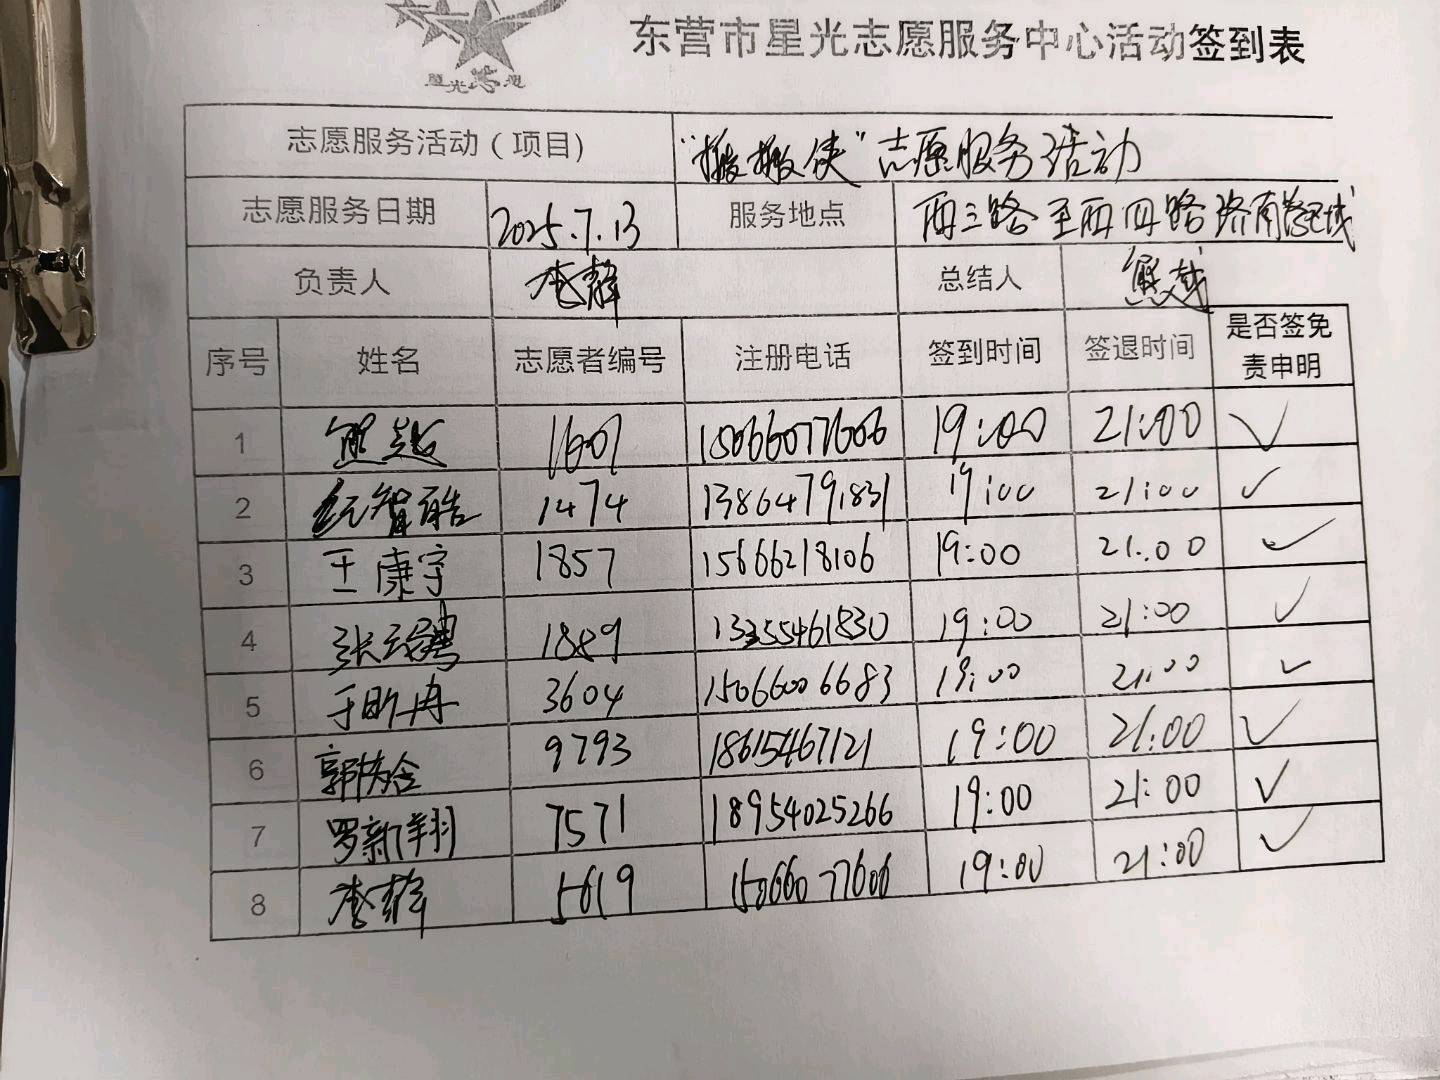 星光志愿
东营市星光志愿服务中心活动签到表
志愿服务活动（项目） "搬搬侠"志愿服务活动
志愿服务日期 2025.7.13 服务地点 西三路至西四路济南路区域
负责人 李静 总结人 熊越
序号 姓名 志愿者编号 注册电话 签到时间 签退时间 是否签免责申明
1 熊越 1607 15066077606 19:00 21:00 ✓
2 纪智皓 1474 13864791831 19:00 21:00 ✓
3 王康宇 1857 15666218106 19:00 21:00 ✓
4 张 1889 13355461830 19:00 21:00 ✓
5 于昕冉 3604 15066006683 19:00 21:00 ✓
6 郭 9793 18615467121 19:00 21:00 ✓
7 罗新翔 7571 18954025266 19:00 21:00 ✓
8 李静 5619 15066077606 19:00 21:00 ✓